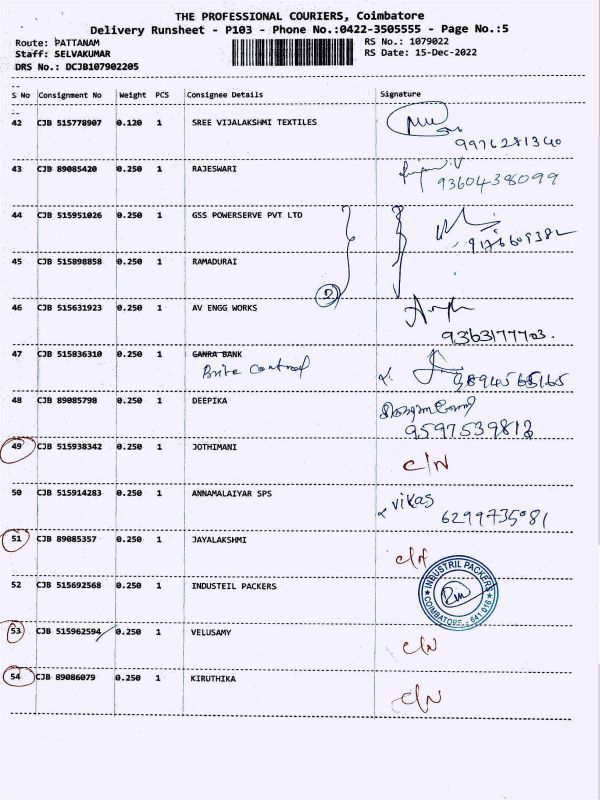 THE PROFESSIONAL COURIERS, Coimbatore
Delivery Runsheet - P103 - Phone No.:0422-3505555 - Page No.:5
Route: PATTANAM RS No.: 1079022
Staff: SELVAKUMAR RS Date: 15-Dec-2022
DRS No.: DCJB107902205
S No Consignment No Weight PCS Consignee Details Signature
42 CJB 515778907 0.120 1 SREE VIJALAKSHMI TEXTILES
9976281340
43 CJB 89085420 0.250 1 RAJESWARI
9360438099
44 CJB 515951026 0.250 1 GSS POWERSERVE PVT LTD
45 CJB 515898858 0.250 1 RAMADURAI
2
46 CJB 515631923 0.250 1 AV ENGG WORKS
9363177703.
47 CJB 515836310 0.250 1 CANRA BANK
Brite Control
9894565165
48 CJB 89085798 0.250 1 DEEPIKA
9597539813
49 CJB 515938342 0.250 1 JOTHIMANI C/N
50 CJB 515914283 0.250 1 ANNAMALAIYAR SPS vikas
6299735081
51 CJB 89085357 0.250 1 JAYALAKSHMI C/N
52 CJB 515692568 0.250 1 INDUSTEIL PACKERS
INDUSTRIL PACKERS
COIMBATORE - 641 016
53 CJB 515962594 0.250 1 VELUSAMY C/N
54 CJB 89086079 0.250 1 KIRUTHIKA C/N